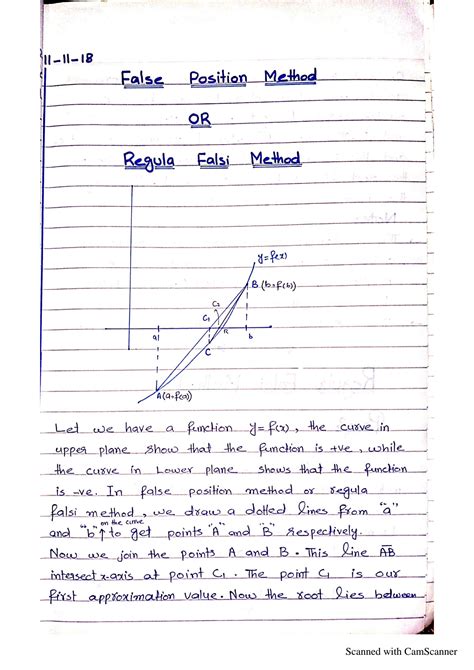 11-11-18
False Position Method
OR
Regula Falsi Method
y=f(x)
B (b,f(b))
C₂
C₁
a
R
b
C
A(a,f(a))
Let we have a function y=f(x), the curve in
upper plane show that the function is +ve, while
the curve in Lower plane shows that the function
is -ve. In false position method or regula
falsi method, we draw a dotted lines from "a"
and "b" ↑ on the curve to get points "A" and "B" respectively.
Now we join the points A and B. This line AB
intersect x-axis at point C₁. The point C₁ is our
first approximation value. Now the root lies between
Scanned with CamScanner